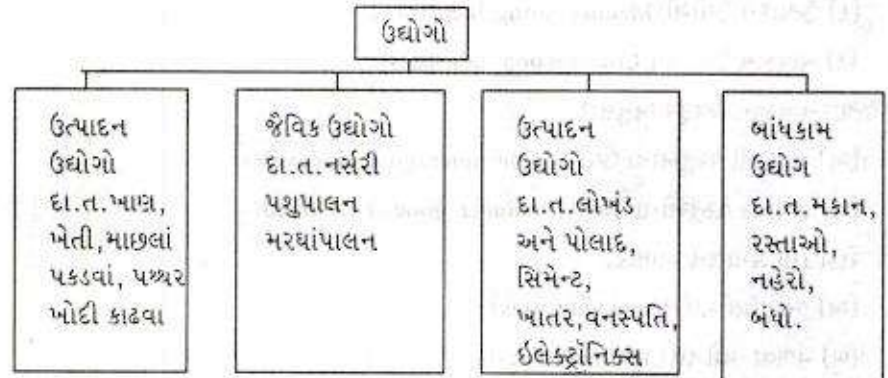 ઉદ્યોગો
ઉત્પાદન
ઉદ્યોગો
દા.ત.ખાણ,
ખેતી,માછલાં
પકડવાં, પથ્થર
ખોદી કાઢવા
જૈવિક ઉદ્યોગો
દા.ત.નર્સરી
પશુપાલન
મરઘાંપાલન
ઉત્પાદન
ઉદ્યોગો
દા.ત.લોખંડ
અને પોલાદ,
સિમેન્ટ,
ખાતર,વનસ્પતિ,
ઇલેક્ટ્રૉનિક્સ
બાંધકામ
ઉદ્યોગ
દા.ત. મકાન,
રસ્તાઓ,
નહેરો,
બંધો.